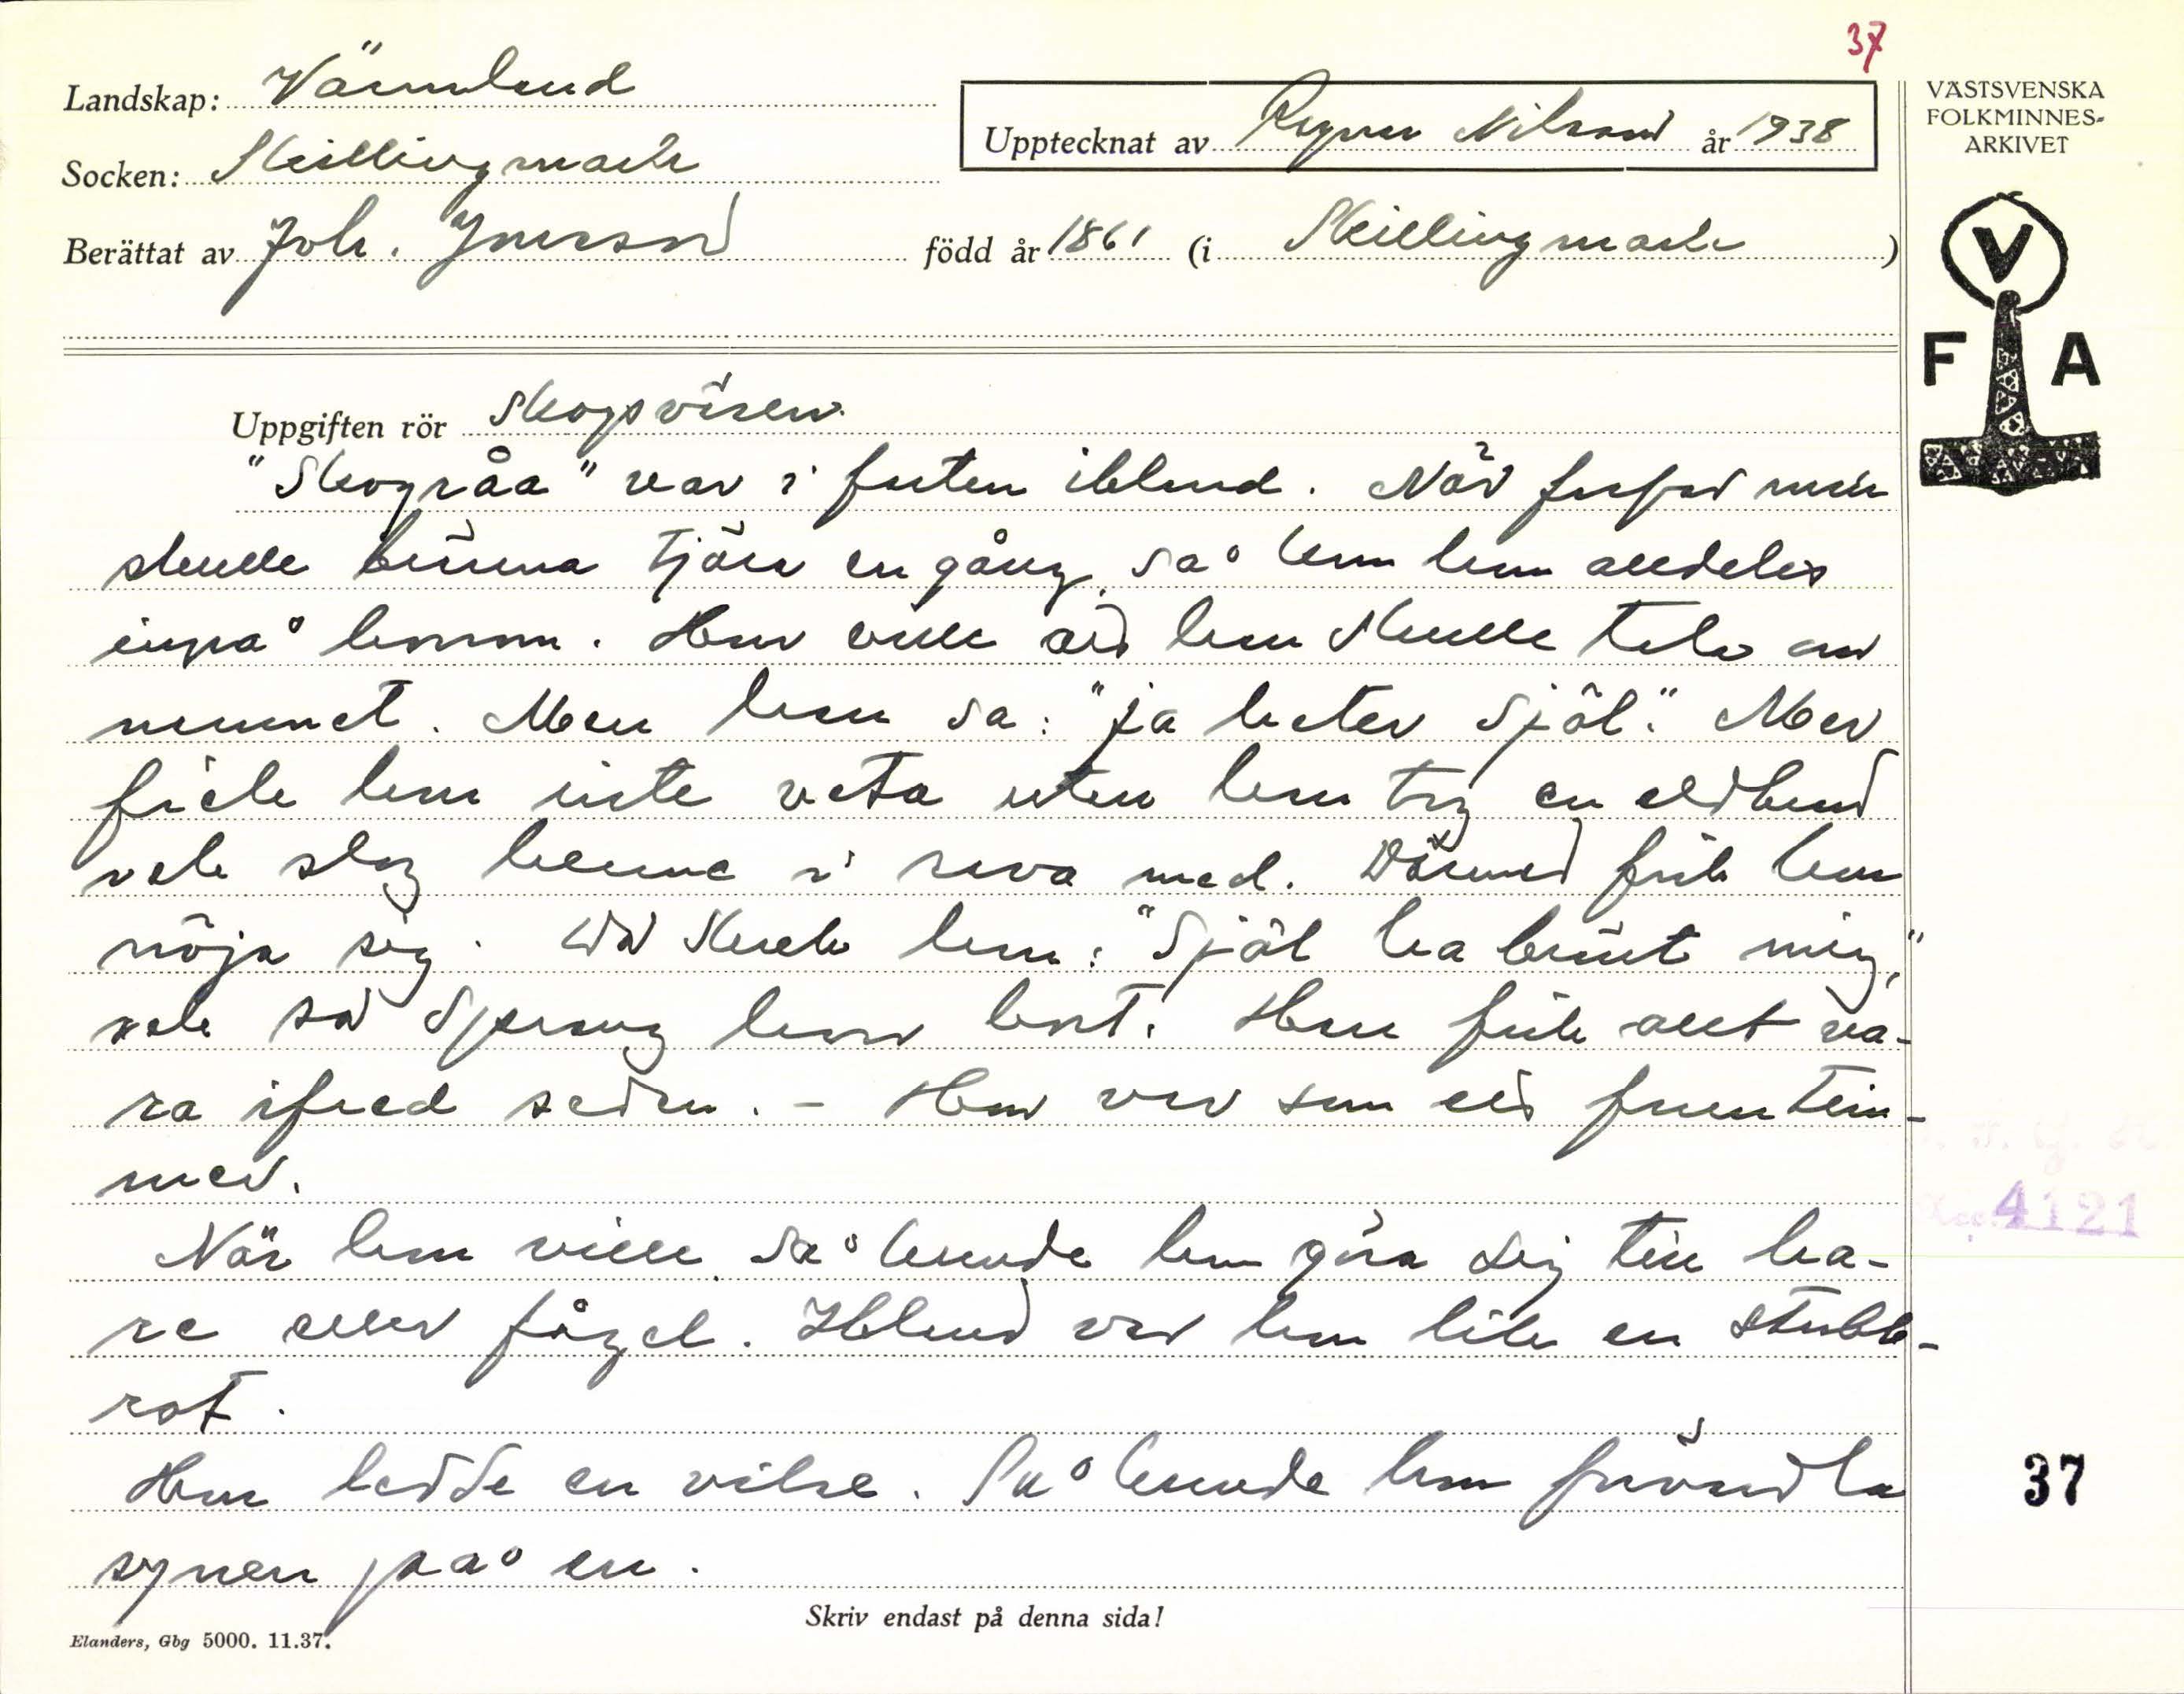 37
Landskap: Värmland
Upptecknat av Ragnar Nilsson år 1938
VÄSTSVENSKA
FOLKMINNES-
ARKIVET
Socken: Skillingmark
Berättat av Joh. Jonsson född år 1861 (i Skillingmark)
V
F A
Uppgiften rör Skogsväsen
"Skogråa" var i farten ibland. När farfar min
skulle bränna tjära en gång, så kom hon alldeles
inpå honom. Hon ville att han skulle tala om
namnet. Men han sa: "ja heter Själ". Mer
fick hon inte veta utan han tog en eldbrand
och slog henne i röva med. Därmed fick hon
nöja sig. Då skrek hon: "Själ ha bränt mig,"
och så sprang hon bort. Han fick allt va-
ra ifred sedan. - Hon var som ett fruntim-
mer.
När hon ville, så kunde hon göra sig till ha-
re eller fågel. Ibland var hon lik en stubb-
rot.
Hon ledde en vilse. Så kunde hon förvändla
synen på en.
4121
37
Skriv endast på denna sida!
Elanders, Gbg 5000. 11.37.